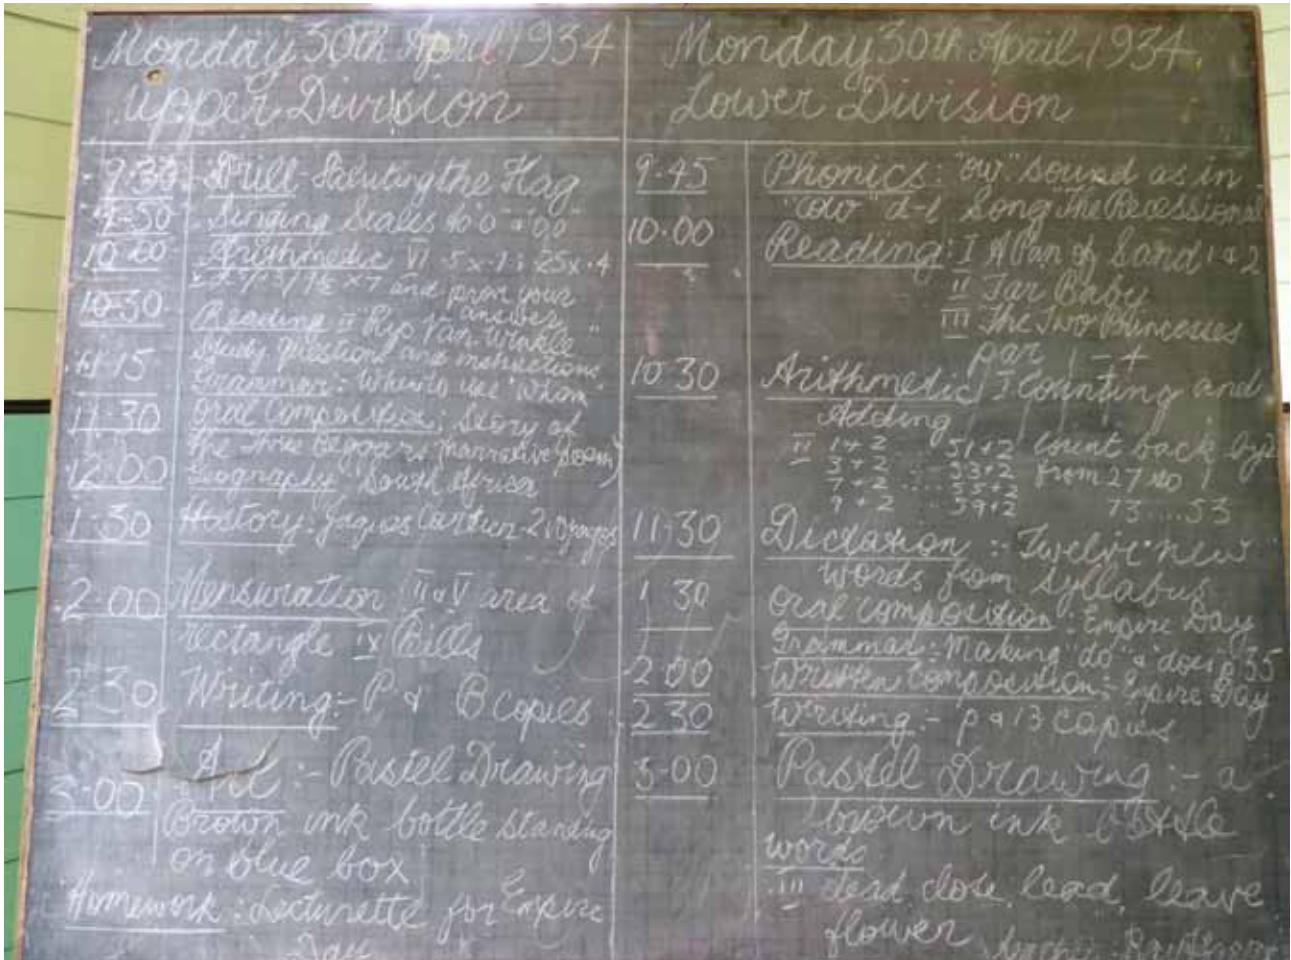 Monday 30th April 1934
Upper Division
9.30 Drill - Saluting the Flag
9-50 Singing Scales to "o" + "oo"
10.00 Arithmetic VI .5 x .7 ; 25 x .4
x 7 and prove your
answer
10-30 Reading II "Rip Van Winkle"
Study Questions and instructions
11-15 Grammar: When to use whom
11.30 Oral Composition: Story of
the Beggars (narrative poem)
12.00 Geography: South Africa
1.30 History: Cartier - 2 voyages
2.00 Mensuration II & V area of
rectangle Bills
2.30 Writing:- P & B copies
3.00 Art:- Pastel Drawing
Brown ink bottle standing
on blue box
Homework: Lecturette for Empire
Day
Monday 30th April 1934
Lower Division
9.45 Phonics: "ow" sound as in
"cow" Song "The Recessional"
10.00 Reading: I A Pan of Sand 1 & 2
II Tar Baby
III The Two Princesses
par 1-4
10.30 Arithmetic I Counting and
Adding
II 1+2 51+2 count back by 2
3+2 53+2 from 27 to 1
7+2 55+2
9+2 59+2 73....53
11.30 Dictation:- Twelve new
words from syllabus
1.30 Oral Composition: Empire Day
Grammar: Making "do" & "does" p 35
2.00 Written Composition:- Empire Day
2.30 Writing:- P & B copies
3.00 Pastel Drawing:- a
brown ink bottle
words
III dead, lead, leave
flower